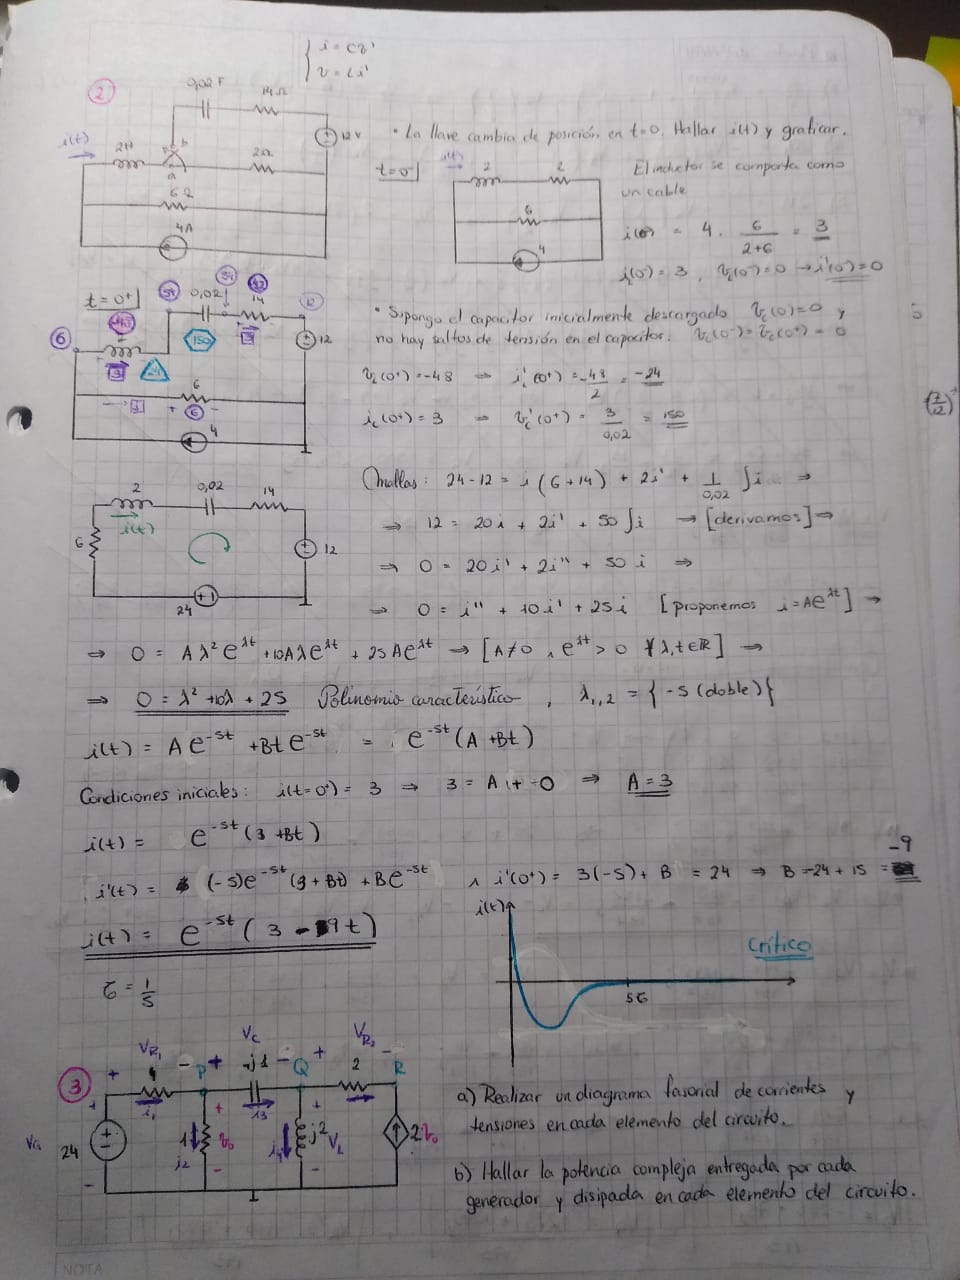 i = Cv'
v = Li'
2
0,02 F
14Ω
12 V
i(t)
2H
b
a
2Ω
6Ω
4A
• La llave cambia de posición en t=0. Hallar i(t) y graficar.
t=0⁻
i(t)
2
2
6
4
El inductor se comporta como
un cable
i(0⁻) = 4 . 6/(2+6) = 3
i(0⁻) = 3 , v_L(0⁻) = 0 → i'(0⁻) = 0
t=0⁺
0,02
14
12
6
150
12
3
-24
6
6
4
• Supongo el capacitor inicialmente descargado v_c(0⁻)=0 y
no hay saltos de tensión en el capacitor. v_c(0⁻)=v_c(0⁺) = 0
v_L(0⁺) = -48 ⇒ i'_L(0⁺) = -48/2 = -24
i_c(0⁺) = 3 ⇒ v'_c(0⁺) = 3/0,02 = 150
2
0,02
14
i(t)
6
12
24
Mallas: 24-12 = i (6+14) + 2i' + 1/0,02 ∫i ⇒
⇒ 12 = 20i + 2i' + 50∫i → [derivamos] ⇒
⇒ 0 = 20i' + 2i'' + 50 i ⇒
⇒ 0 = i'' + 10i' + 25i [proponemos i = Ae^λt] →
⇒ 0 = Aλ²e^λt + 10Aλe^λt + 25Ae^λt → [A≠0 ∧ e^λt > 0 ∀λ,t∈ℝ] →
⇒ 0 = λ² + 10λ + 25 Polinomio característico , λ₁,₂ = {-5 (doble)}
i(t) = A e^-5t + Bt e^-5t = e^-5t (A + Bt)
Condiciones iniciales: i(t=0⁺) = 3 ⇒ 3 = A + 0 ⇒ A = 3
i(t) = e^-5t (3 + Bt)
i'(t) = (-5)e^-5t (3 + Bt) + Be^-5t ∧ i'(0⁺) = 3(-5) + B = 24 ⇒ B = -24 + 15 = -9
i(t) = e^-5t ( 3 - 9t )
τ = 1/5
i(t)
Crítico
5τ
3
V_R₁
P
V_c
-j1
Q
V_R₂
2
R
i₁
i₃
V_G
24
1
i₂
v₀
i₄
j2
V_L
2v₀
a) Realizar un diagrama fasorial de corrientes y
tensiones en cada elemento del circuito.
b) Hallar la potencia compleja entregada por cada
generador y disipada en cada elemento del circuito.
NOTA